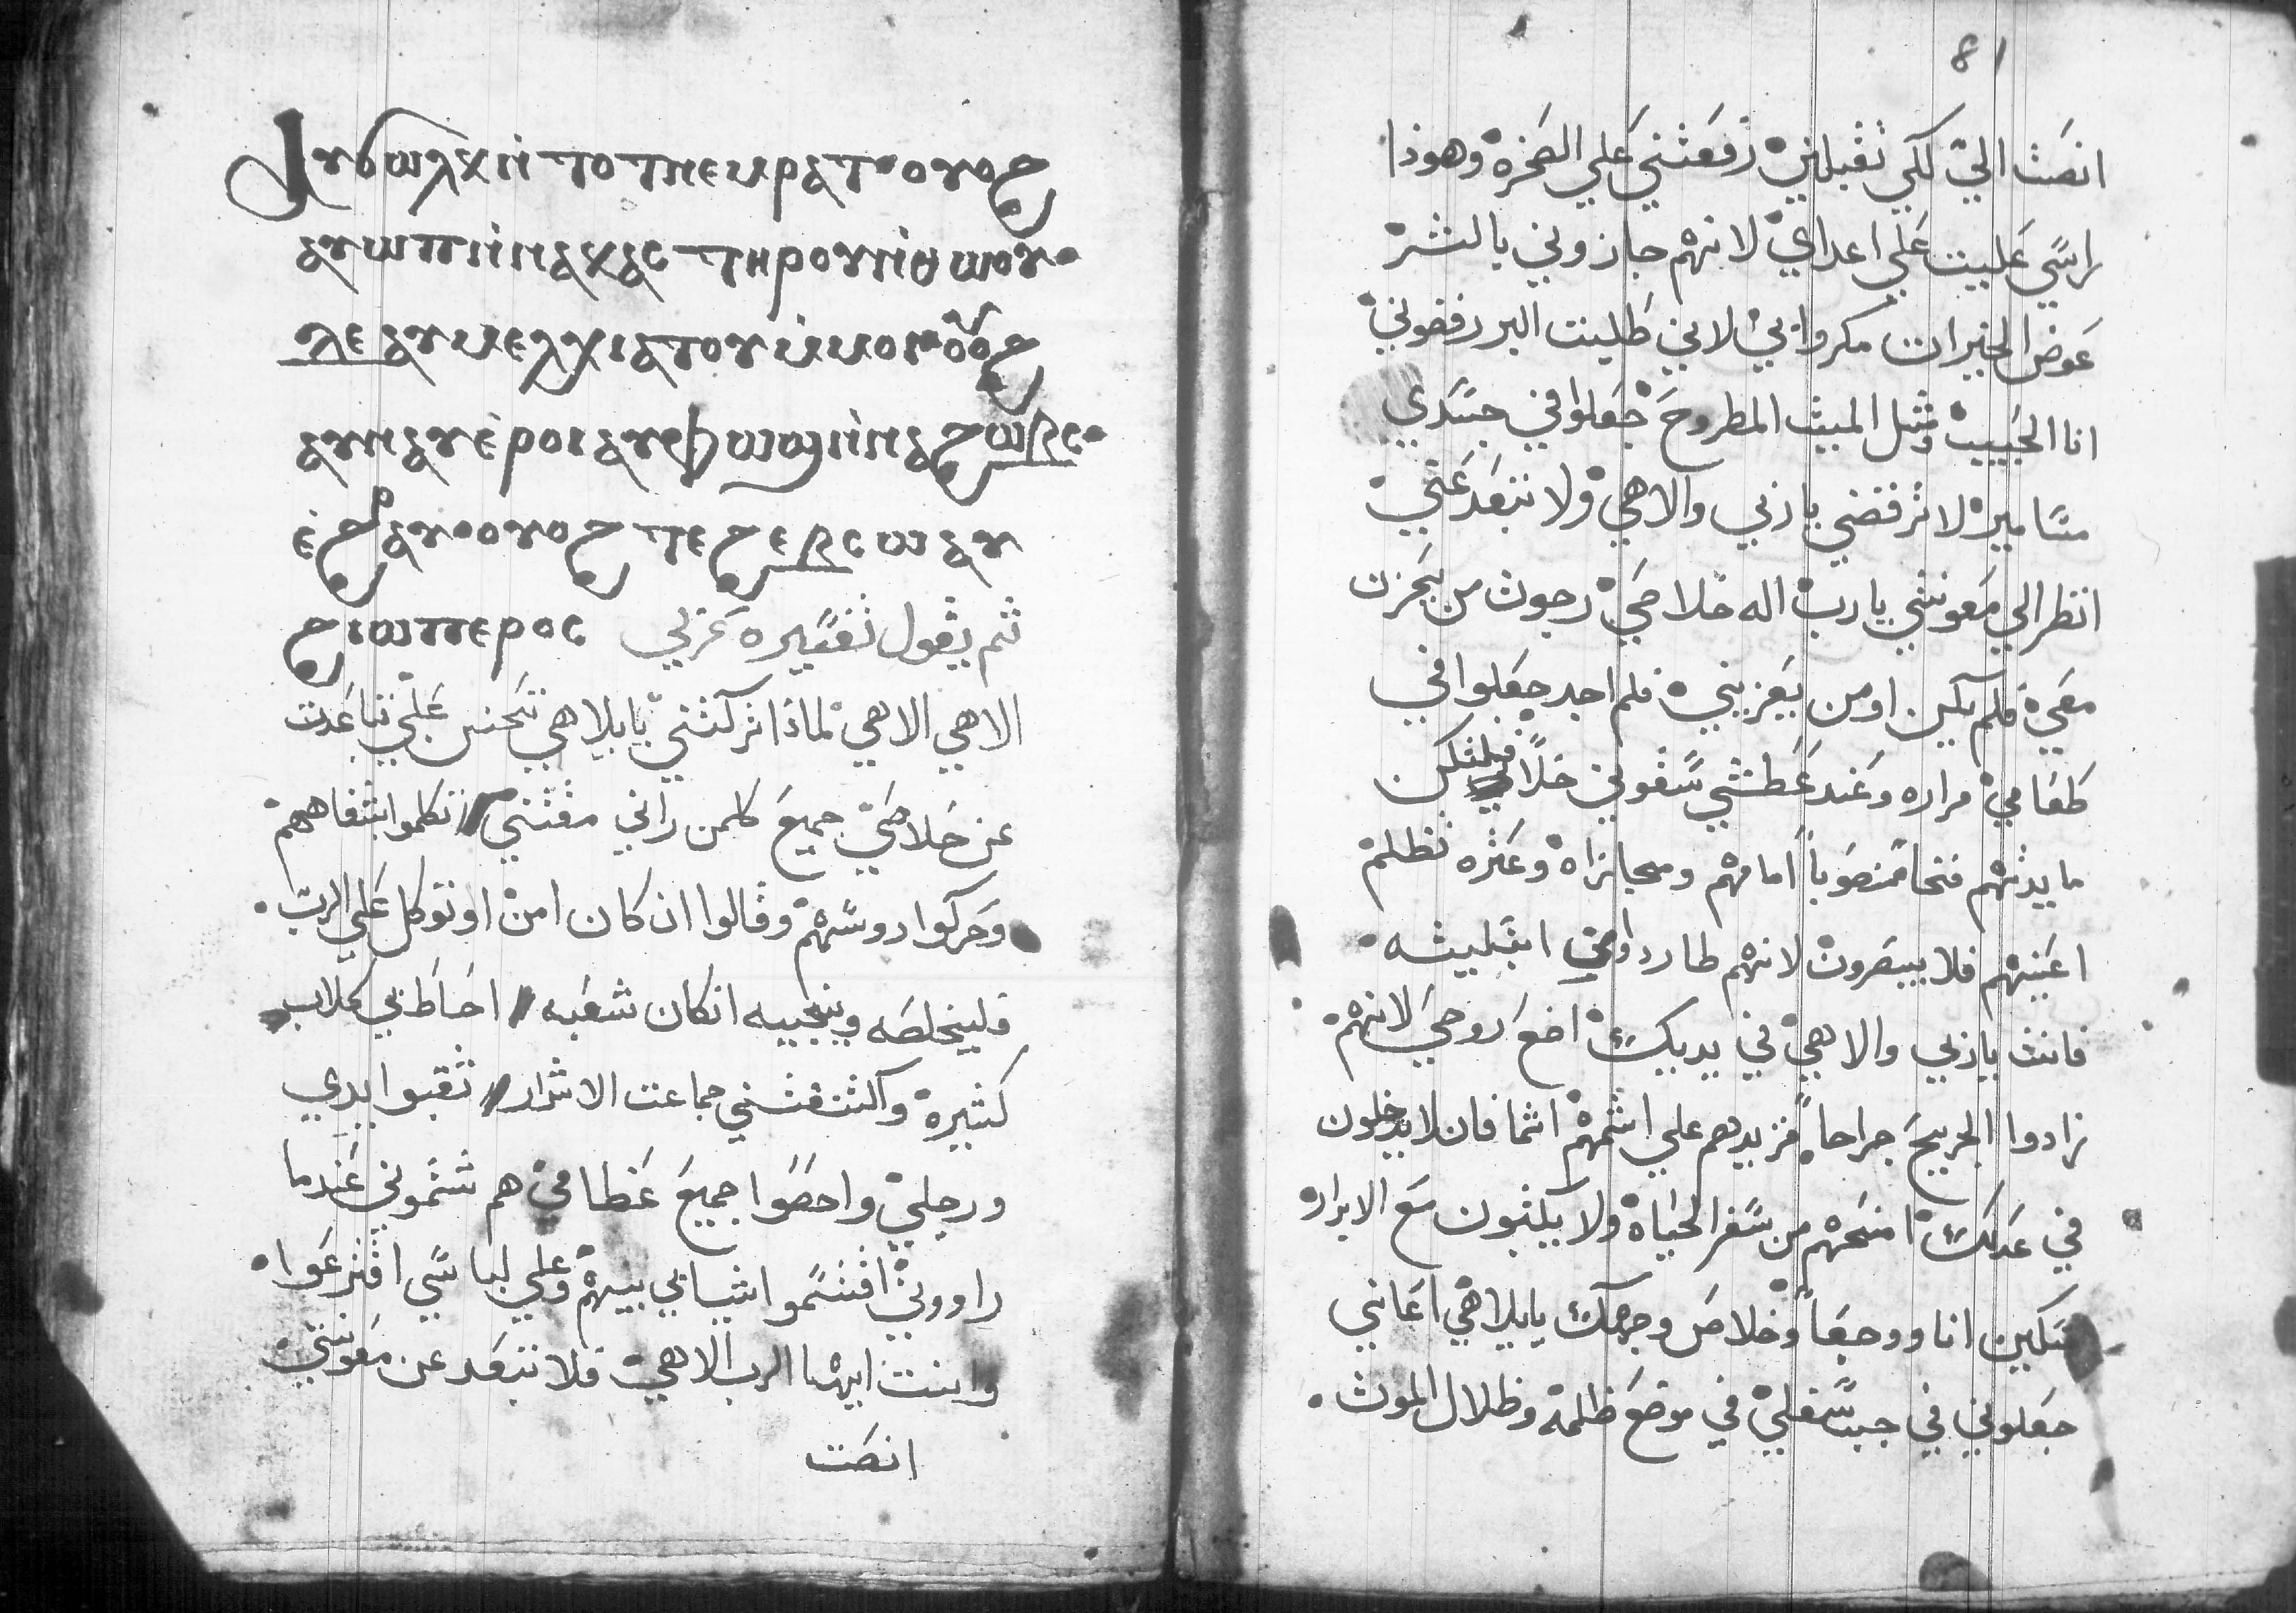 ⲁⲩϭⲱⲗⲕ ⲛ̀ ⲧⲟⲧ ⲛⲉⲙ ⲣⲁⲧ · ⲟⲩⲟϩ
ⲁⲩⲱⲡ ⲛ̀ⲛⲁⲕⲁⲥ ⲧⲏⲣⲟⲩ ⲛ̀ⲑⲱⲟⲩ ·
ⲁⲩ
ⲁⲩⲛⲁⲩ ⲉ̀ⲣⲟⲓ ⲁⲩⲫⲱϣ ⲛ̀ⲛⲁϩⲃⲥ ·
ⲉ̀ϩⲣⲁⲩ · ⲟⲩⲟϩ ⲧⲁϩⲉⲃⲥⲱ ⲁⲩ
ϩⲓⲱⲡ ⲉⲣⲟⲥ ثم يقول تفسيره عربي
الاهي الاهي لماذا تركتني يايلاهي تتحنن علي تباعدت
عن خلاصي جميع كلمن راني مقتني تكلموا بشفاههم
وحركوا روسهم وقالوا ان كان امن او توكل علي الرب ·
فليخلصه وينجييه انكان شعبه احاط بي كلاب
كثيرة واكتنفتني جماعت الاشرار ثقبوا يدي
ورجلي واحصوا جميع عظامي هم شتموني عندما
راووني اقتسموا ثيابي بينهم وعلي لباسي اقترعوا ·
وانت ايها الرب الاهي فلا تبعد عن معونتي
انصت
81
انصت الي لكي تقبلني رفعتني علي الصخره وهوذا
راسي عليت علي اعداي لانهم جازوني بالشر
عوض الخيرات مكروا بي لاني طلبت البر رفضوني
انا الحبيب مثل الميت المطروح جعلوا في جسدي
مسامير لا ترفضني يا ربي والاهي ولا تبعد عني
انظر الي معونتي يا رب اله خلاصي رجوت من يحزن
معي فلم يكن او من يعزيني فلم اجد جعلوا في
طعامي مراره وعند عطشي سقوني خلا فلتكن
مايدتهم فخا منصوبا امامهم ومجازاه وعثره تظلم
اعينهم فلا يبصرون لانهم طاردوا من ابتليته ·
فانت يا ربي والاهي في يديك اضع روحي لانهم
زادوا الجريح جراحا فزيدهم علي اثمهم اثما فان لا يدخلون
في عدلك امنحهم من سفر الحياه ولا يكتبون مع الابرار
مسكين انا ووجعا وخلاص وجهك يايلاهي اعانني
جعلوني في جب سفلي في موضع ظلمه وظلال الموت ·